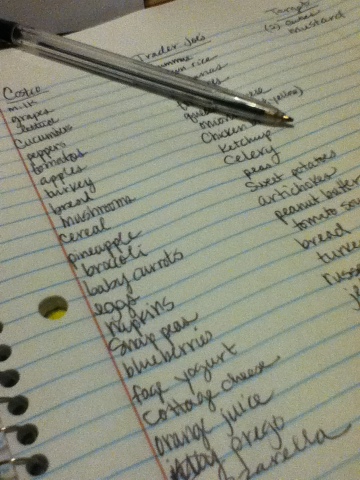 Costco
milk
grapes
lettuce
cucumbers
peppers
tomatoes
apples
turkey
bread
mushrooms
cereal
pineapple
brocoli
baby carrots
eggs
napkins
snap peas
blueberries
fage yogurt
cottage cheese
orange juice
prego
Trader Joe's
rice
Chicken
ketchup
celery
peas
sweet potatoes
artichokes
peanut butter
tomato
bread
Target
mustard